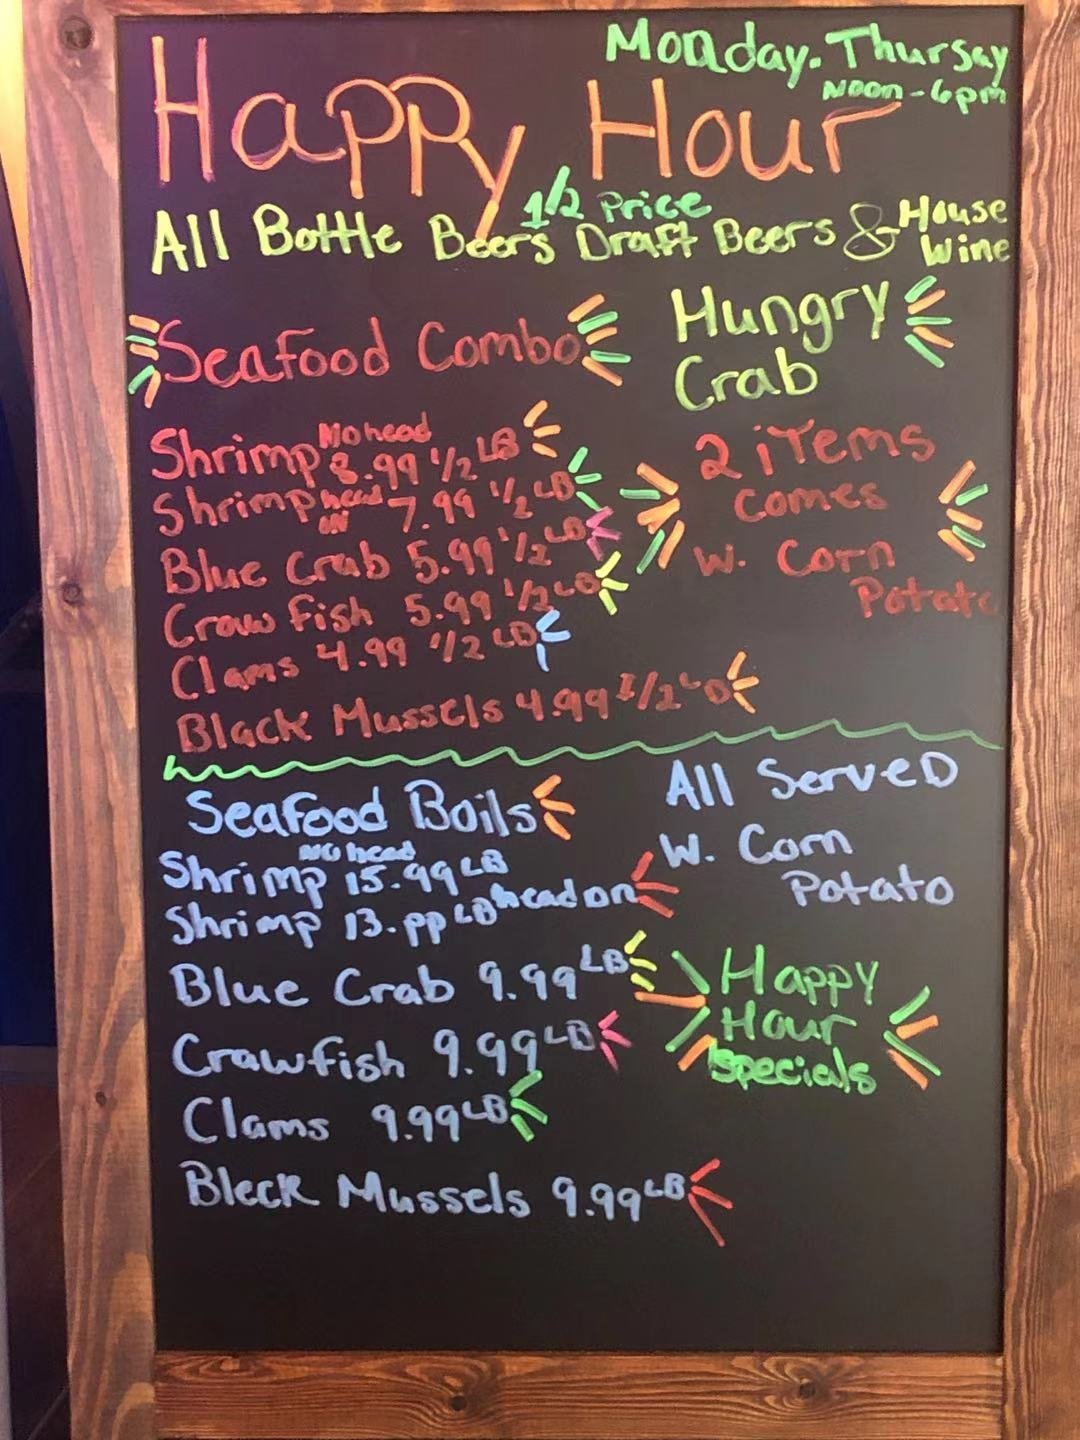 Monday. Thursay
Noon - 6pm
Happy Hour
1/2 Price
All Bottle Beers Draft Beers & House Wine
Seafood Combo
Hungry
Crab
Shrimp No head 8.99 1/2 LB
Shrimp head on 7.99 1/2 LB
Blue Crab 5.99 1/2 LB
Craw fish 5.99 1/2 LB
Clams 4.99 1/2 LB
Black Mussels 4.99 1/2 LB
2 items
comes
W. Corn
Potato
Seafood Boils
Shrimp No head 15.99 LB
Shrimp 13.pp LB head on
Blue Crab 9.99 LB
Crawfish 9.99 LB
Clams 9.99 LB
Bleck Mussels 9.99 LB
All Served
W. Corn
Potato
Happy
Hour
specials